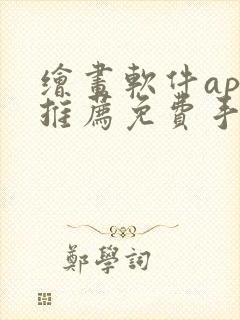 繪畫軟件ap
推薦免費手
鄭學詞